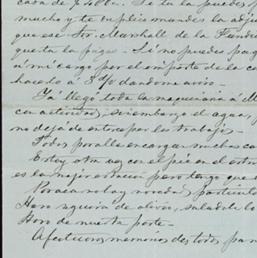 casa de
mucho y te suplico mandes la adju
que ese Sr. Marshall de la Fundi
queta la pague. Si no puedes pag
á mi cargo por el importe de la c
hacerlo á S/O dandome aviso.
Ya llegó toda la maquinaria á M
con actividad, sin embargo el agua,
no deja de entorpecer los trabajos.
Todos por allá encargan muchas ca
Estoy otra vez con el pié en el estri
es la mejor estacion pero tengo que
Por acá no hay novedad particula
de alivio, saludale
de nuestra parte.
Afectuosas memorias de todos para